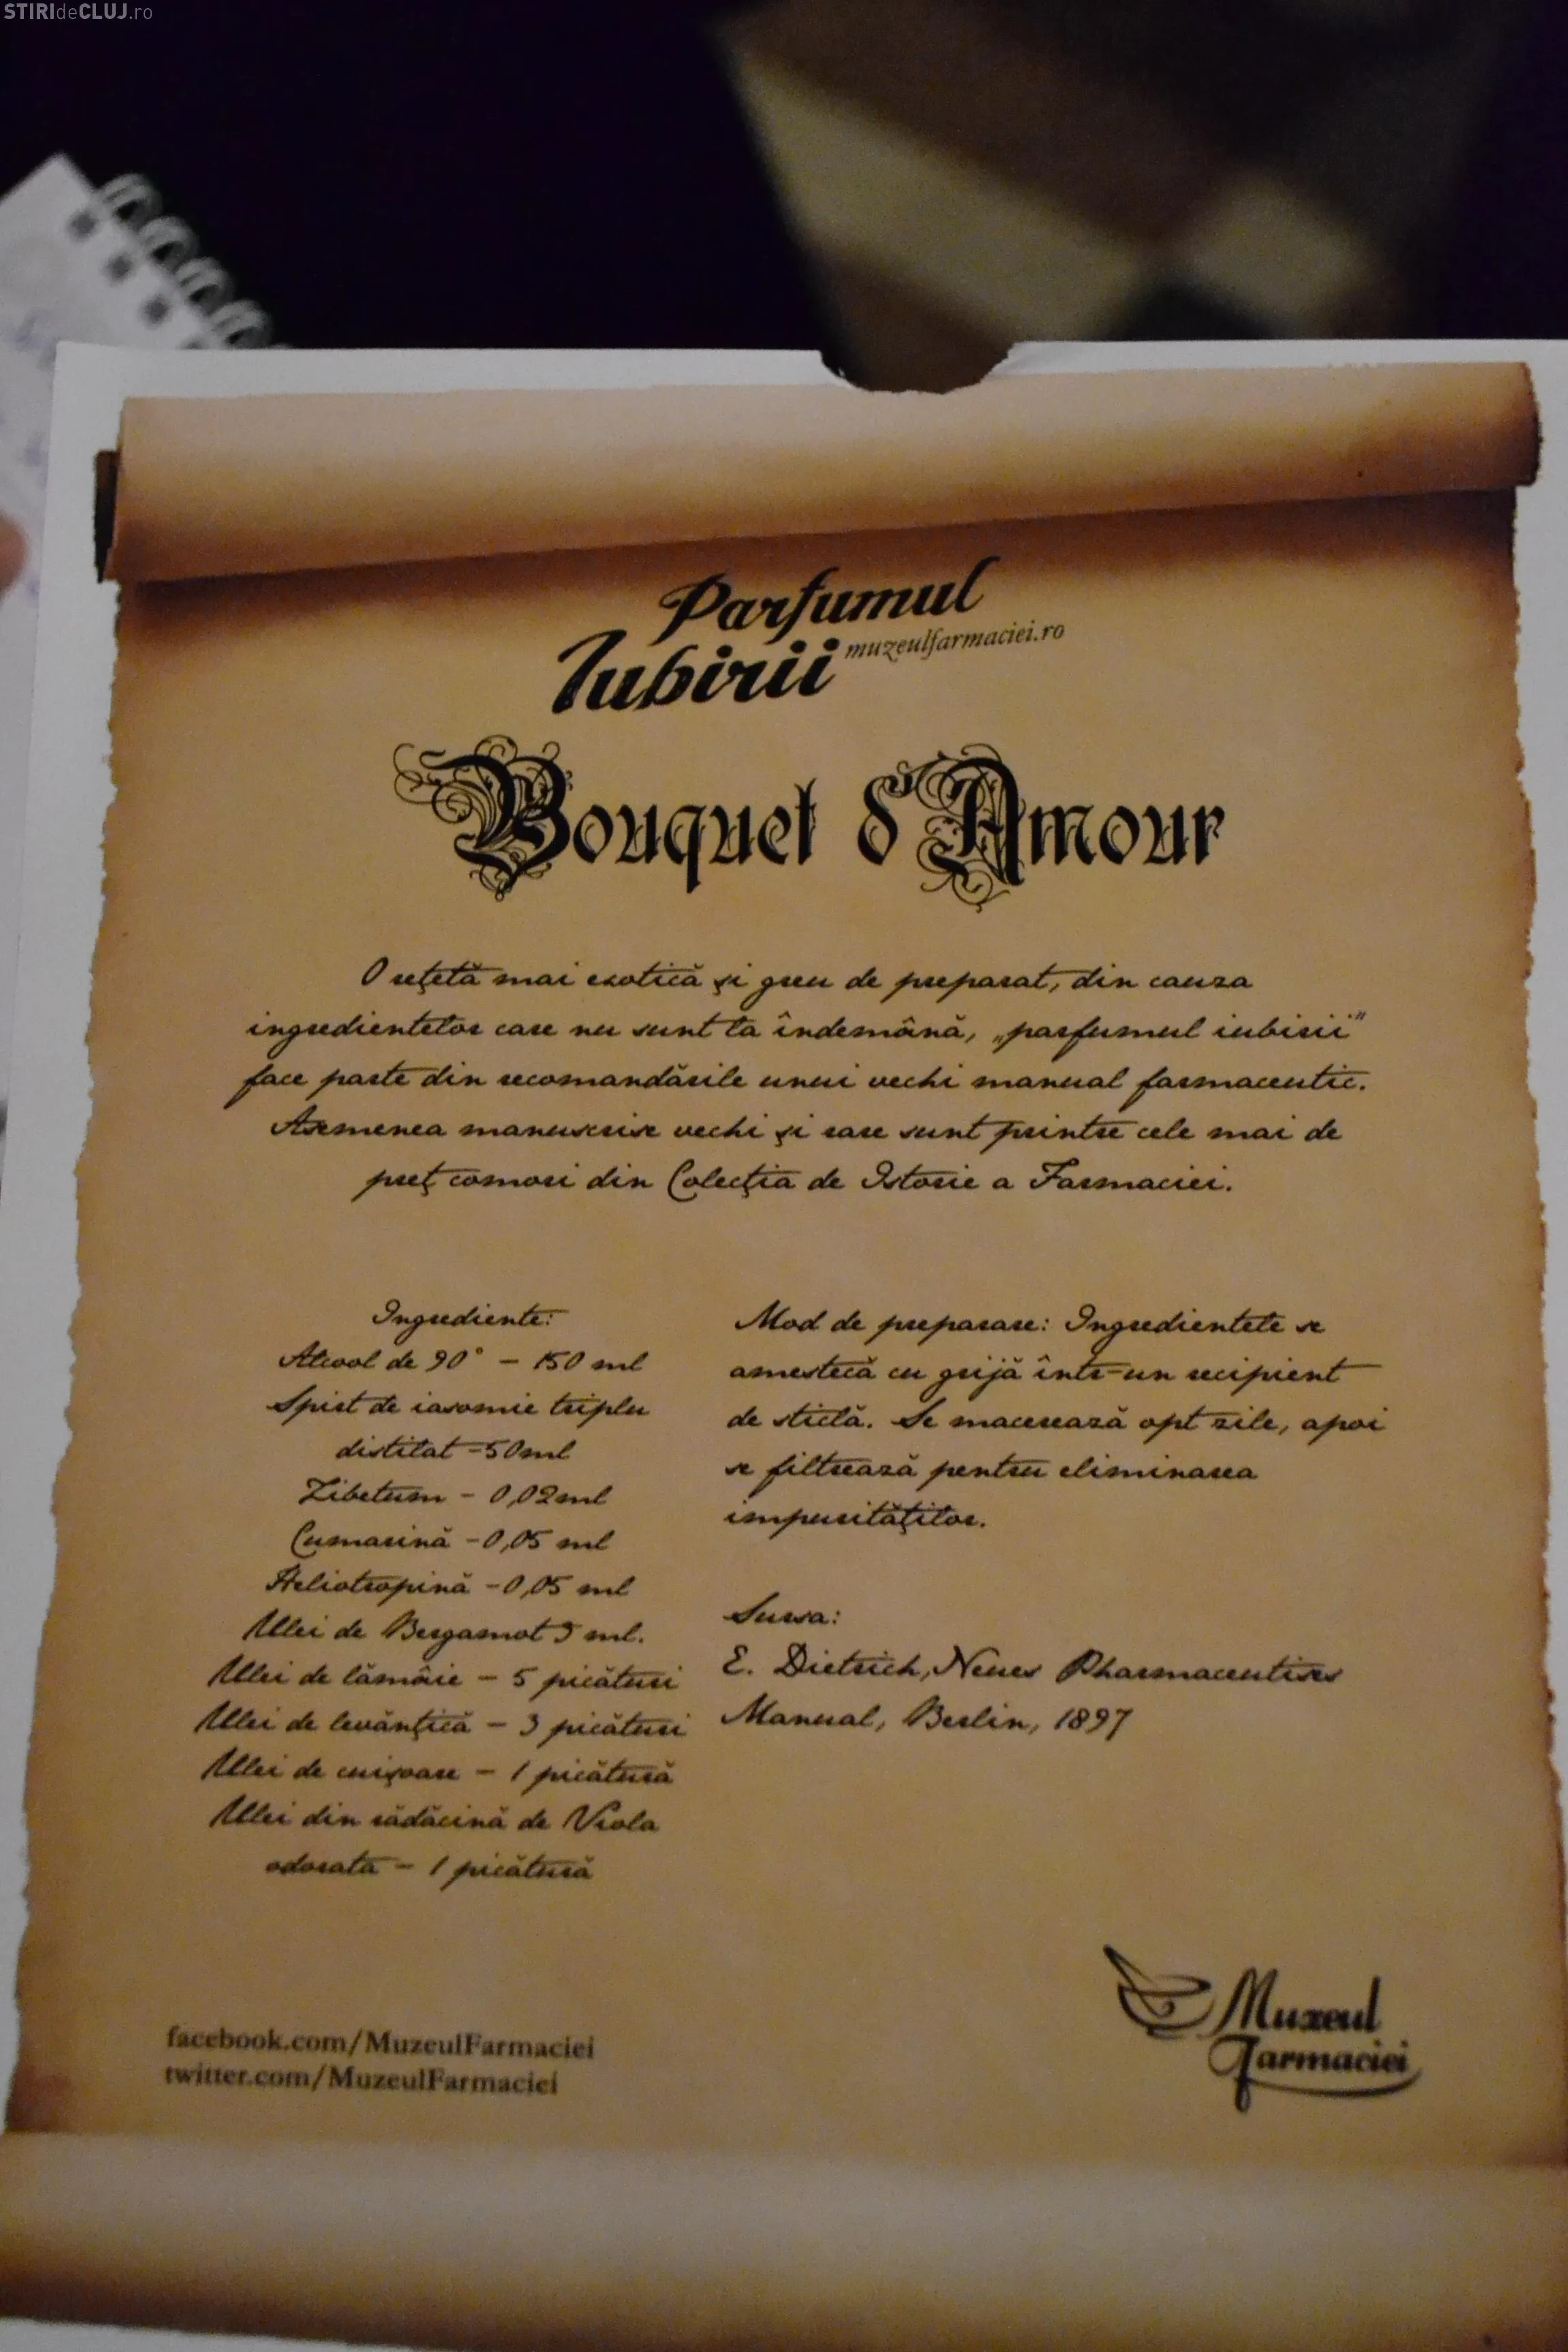 STIRIdeCLUJ.ro
Parfumul
Iubirii muzeulfarmaciei.ro
Bouquet d'Amour
O reţetă mai exotică şi greu de preparat, din cauza
ingredientelor care nu sunt la îndemână, „parfumul iubirii”
face parte din recomandările unui vechi manual farmaceutic.
Asemenea manuscrise vechi şi rare sunt printre cele mai de
preţ comori din Colecţia de Istorie a Farmaciei.
Ingrediente:
Alcool de 90° - 150 ml
Spirt de iasomie triplu
distilat -50ml
Zibetum - 0,02ml
Cumarină -0,05 ml
Heliotropină -0,05 ml
Ulei de Bergamot 3 ml.
Ulei de lămâie - 5 picături
Ulei de levănţică - 3 picături
Ulei de cuişoare - 1 picătură
Ulei din rădăcină de Viola
odorata - 1 picătură
Mod de preparare: Ingredientele se
amestecă cu grijă într-un recipient
de sticlă. Se macerează opt zile, apoi
se filtrează pentru eliminarea
impurităţilor.
Sursa:
E. Dietrich, Neues Pharmaceutises
Manual, Berlin, 1897
facebook.com/MuzeulFarmaciei
twitter.com/MuzeulFarmaciei
Muzeul
Farmaciei